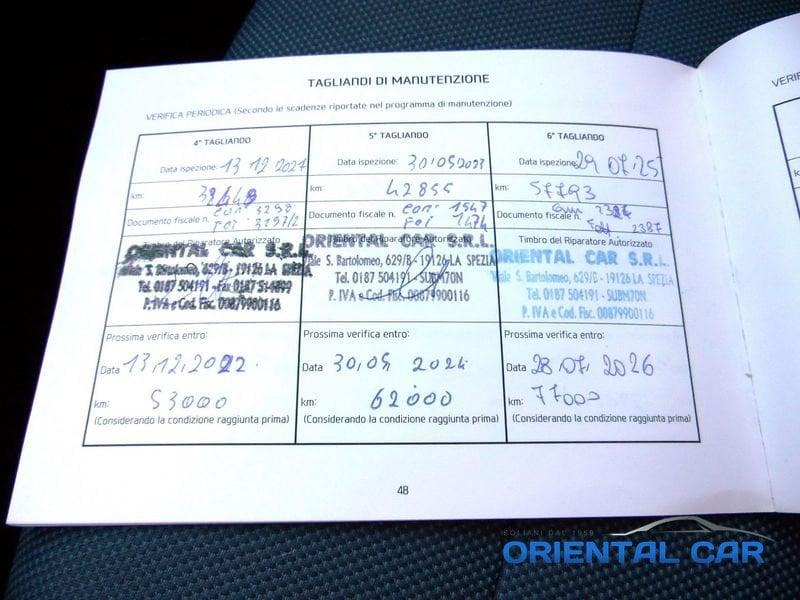 TAGLIANDI DI MANUTENZIONE
VERIFICA PERIODICA (Secondo le scadenze riportate nel programma di manutenzione)
4° TAGLIANDO
Data ispezione: 13 12 2021
km:
Documento fiscale n.
Timbro del Riparatore Autorizzato
ORIENTAL CAR S.R.L.
Viale S. Bartolomeo, 629/B - 19126 LA SPEZIA
Tel. 0187 504191 - Fax 0187
P. IVA e Cod. Fisc. 00879900116
Prossima verifica entro:
Data 13.12.2022.
km: 53000
(Considerando la condizione raggiunta prima)
5° TAGLIANDO
Data ispezione: 30/05/2023
km: 42855
Documento fiscale n. 1547
1474
Timbro del Riparatore Autorizzato
ORIENTAL CAR S.R.L.
Viale S. Bartolomeo, 629/B - 19126 LA SPEZIA
Tel. 0187 504191 - SUBM70N
P. IVA e Cod. Fisc. 00879900116
Prossima verifica entro:
Data 30.05 2024
km: 62000
(Considerando la condizione raggiunta prima)
6° TAGLIANDO
Data ispezione: 29 07.25
km: 57793
Documento fiscale n. 2387
Timbro del Riparatore Autorizzato
ORIENTAL CAR S.R.L.
Viale S. Bartolomeo, 629/B - 19126 LA SPEZIA
Tel. 0187 504191 - SUBM70N
P. IVA e Cod. Fisc. 00879900116
Prossima verifica entro:
Data 28 07. 2026
km: 77000
(Considerando la condizione raggiunta prima)
48
SOLIANI DAL 1959
ORIENTAL CAR